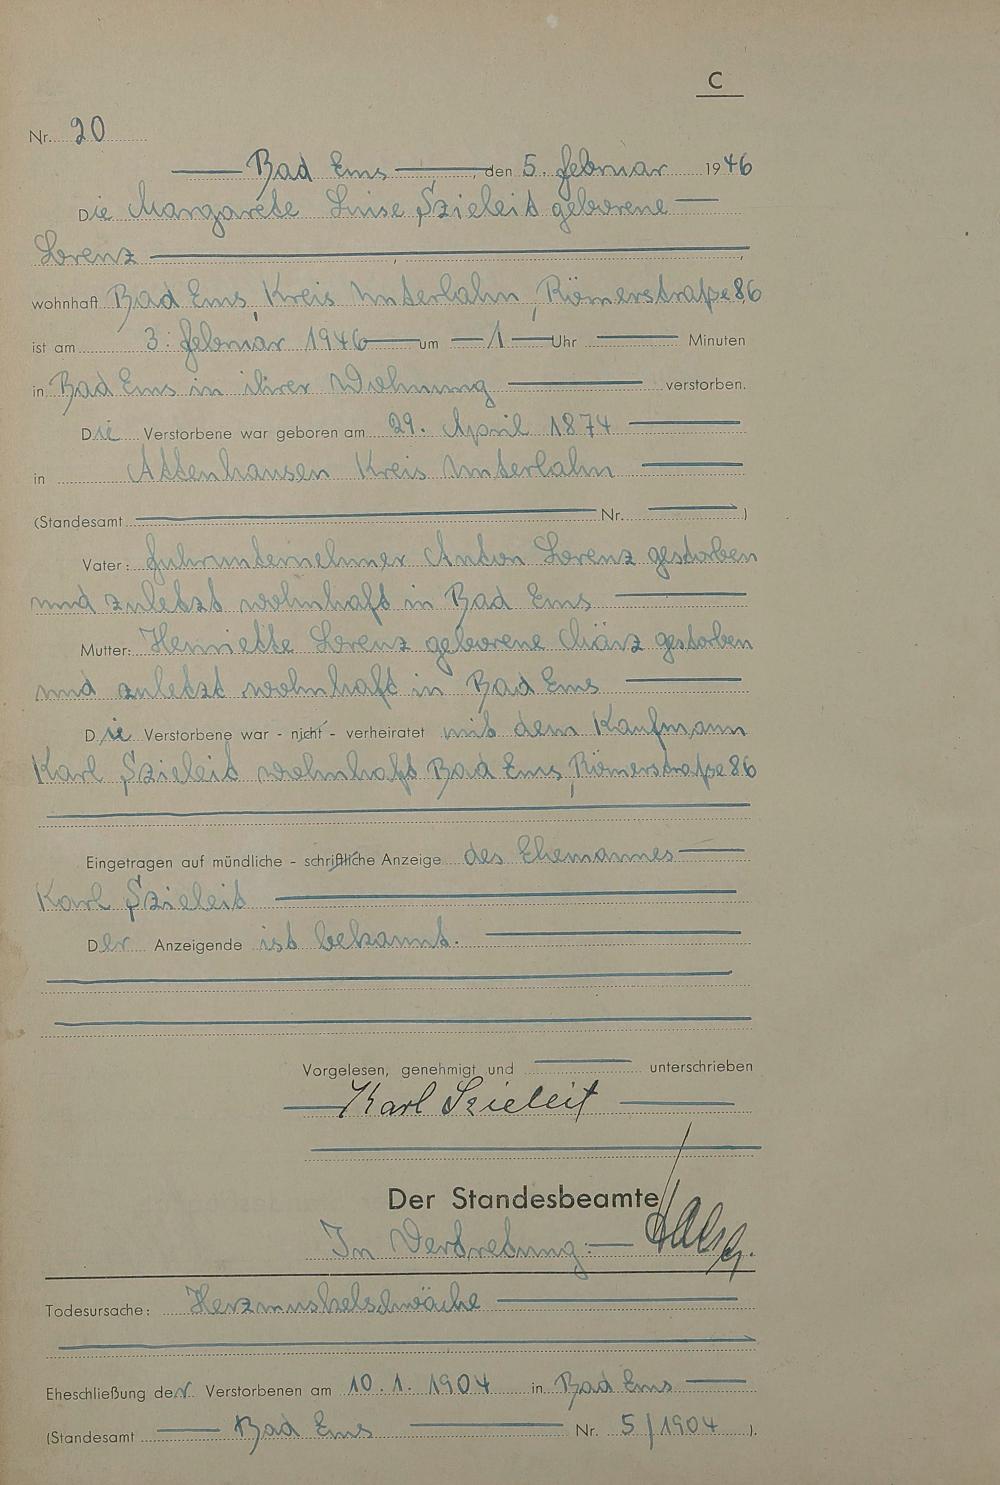 C
Nr. 20
Bad Ems, den 5. Februar 1946
Die Margarete Luise Szieleit geborene
Lorenz
wohnhaft Bad Ems, Kreis Unterlahn, Römerstraße 86
ist am 3. Februar 1946 um 1 Uhr Minuten
in Bad Ems in ihrer Wohnung verstorben.
Die Verstorbene war geboren am 29. April 1874
in Attenhausen Kreis Unterlahn
(Standesamt Nr. )
Vater: Fuhrunternehmer Anton Lorenz gestorben
und zuletzt wohnhaft in Bad Ems
Mutter: Henriette Lorenz geborene März gestorben
und zuletzt wohnhaft in Bad Ems
Die Verstorbene war - nicht - verheiratet mit dem Kaufmann
Karl Szieleit wohnhaft Bad Ems, Römerstraße 86
Eingetragen auf mündliche - schriftliche Anzeige des Ehemannes
Karl Szieleit
Der Anzeigende ist bekannt.
Vorgelesen, genehmigt und unterschrieben
Karl Szieleit
Der Standesbeamte
In Vertretung:
Todesursache: Herzmuskelschwäche
Eheschließung der Verstorbenen am 10. 1. 1904 in Bad Ems
(Standesamt Bad Ems Nr. 5/1904 ).